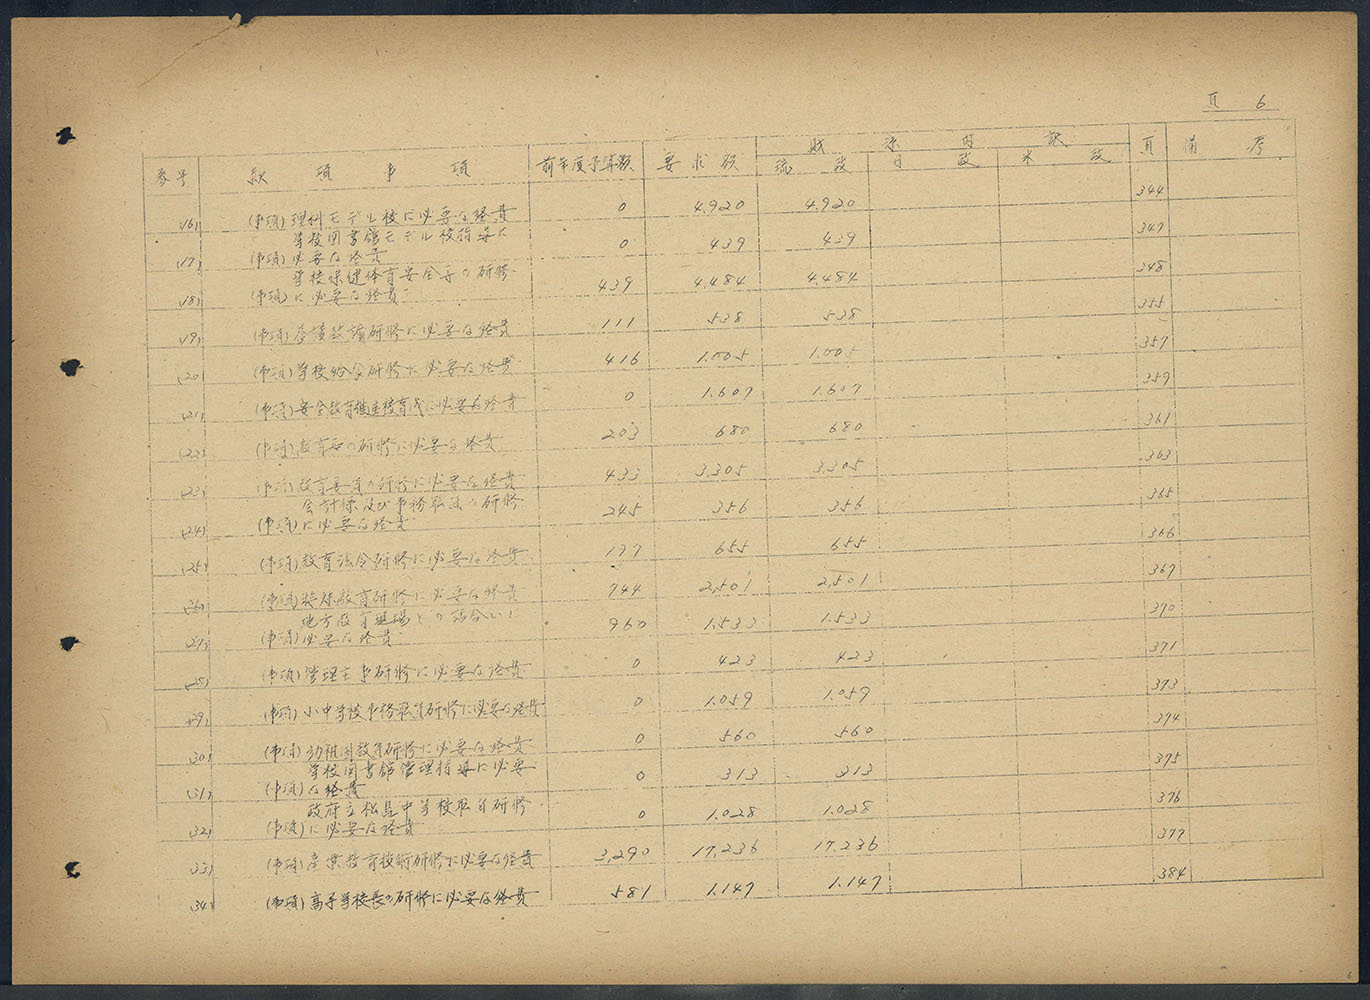 頁 6
番号 款 項 事 項 前年度予算額 要求額 財 源 内 訳 頁 備 考
琉 政 日 政 米 政
(16) (事項) 理科モデル校に必要な経費 0 4,920 4,920 344
学校図書館モデル校指導に
(17) (事項) 必要な経費 0 439 439 347
学校保健体育安全等の研修
(18) (事項) に必要な経費 439 4,484 4,484 348
(19) (事項) 養護教諭研修に必要な経費 111 538 538 355
(20) (事項) 学校給食研修に必要な経費 416 1,005 1,005 357
(21) (事項) 安全教育推進校育成に必要な経費 0 1,607 1,607 359
(22) (事項) 教育長の研修に必要な経費 203 680 680 361
(23) (事項) 教育委員の研修に必要な経費 433 3,305 3,305 363
会計係及び事務職員の研修
(24) (事項) に必要な経費 245 356 356 365
(25) (事項) 教育法令研修に必要な経費 177 655 655 366
(26) (事項) 特殊教育研修に必要な経費 744 2,501 2,501 367
地方教育現場との話合いに
(27) (事項) 必要な経費 960 1,533 1,533 370
(28) (事項) 管理主事研修に必要な経費 0 423 423 371
(29) (事項) 小中学校事務職員研修に必要な経費 0 1,059 1,059 373
(30) (事項) 幼稚園教育研修に必要な経費 0 560 560 374
学校図書館管理指導に必要
(31) (事項) な経費 0 313 313 375
政府立松島中学校職員研修
(32) (事項) に必要な経費 0 1,028 1,028 376
(33) (事項) 産業教育技術研修に必要な経費 3,290 17,236 17,236 377
(34) (事項) 高等学校長の研修に必要な経費 581 1,147 1,147 384
6